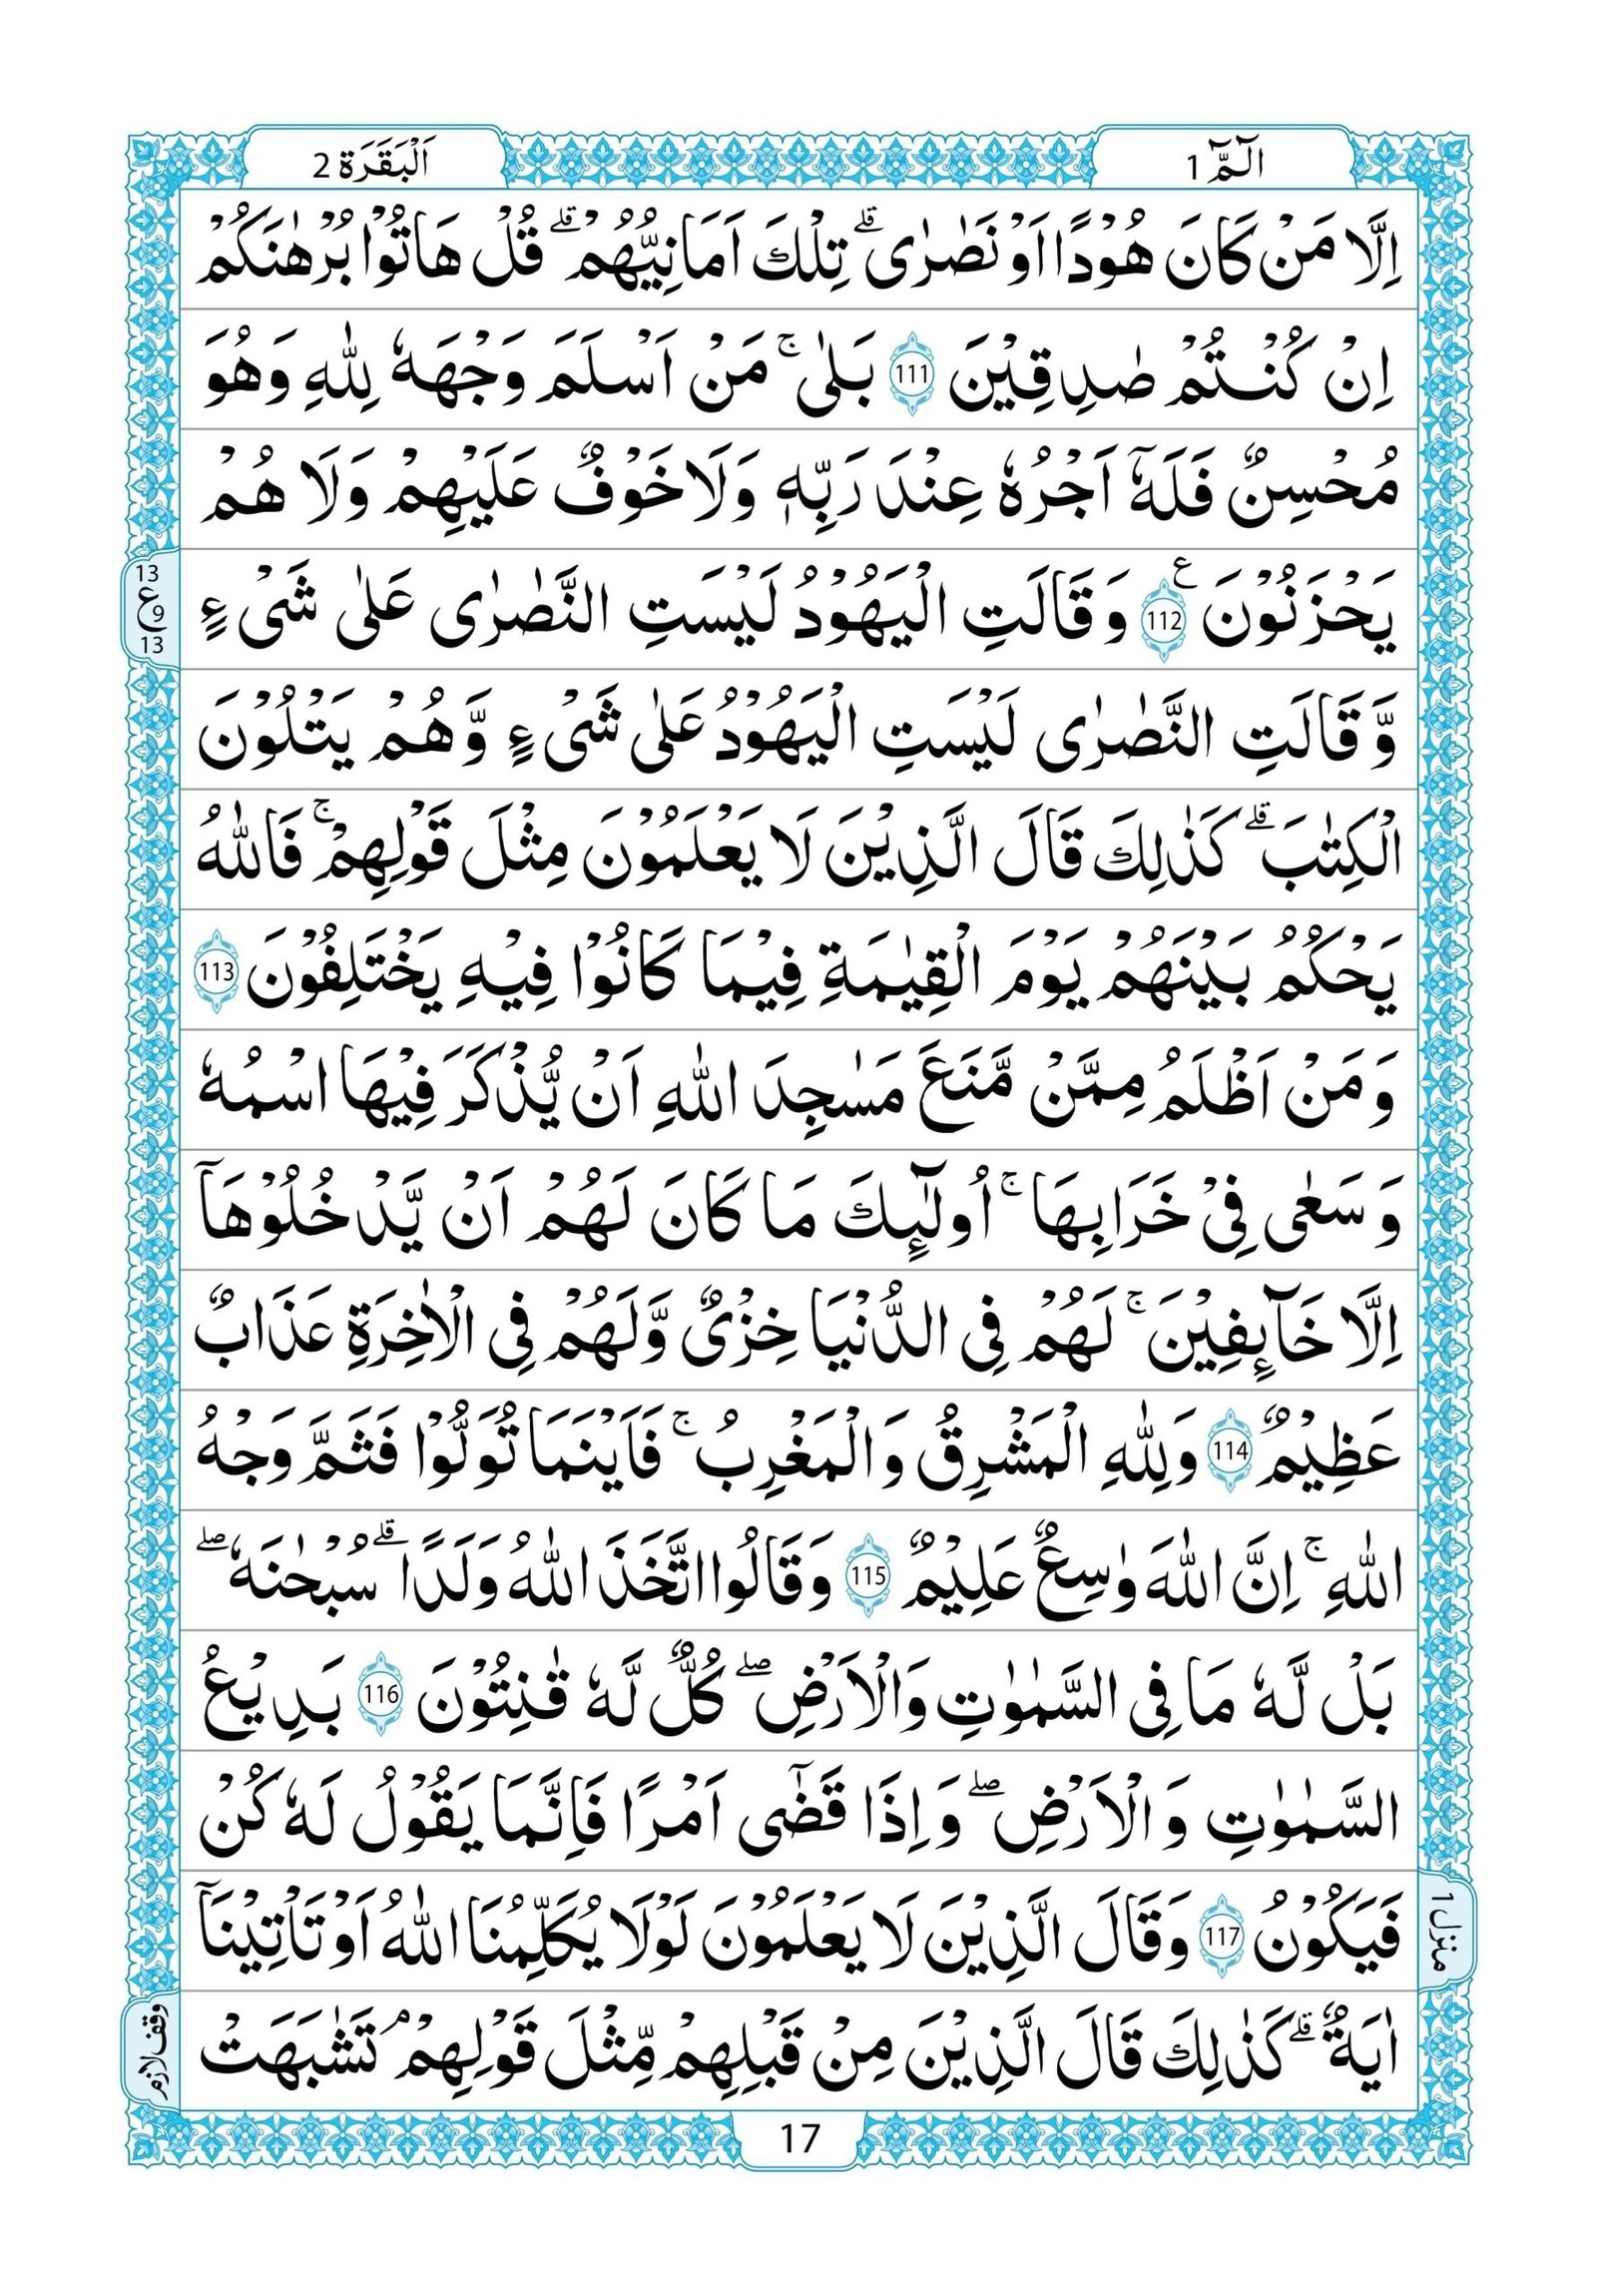 الٓمّٓ 1
اَلْبَقَرَة 2
اِلَّا مَنْ كَانَ هُوْدًا اَوْ نَصٰرٰى ؕ تِلْكَ اَمَانِيُّهُمْ ؕ قُلْ هَاتُوْا بُرْهٰنَكُمْ
اِنْ كُنْتُمْ صٰدِقِيْنَ 111 بَلٰى ۚ مَنْ اَسْلَمَ وَجْهَهٗ لِلّٰهِ وَهُوَ
مُحْسِنٌ فَلَهٗٓ اَجْرُهٗ عِنْدَ رَبِّهٖ وَلَا خَوْفٌ عَلَيْهِمْ وَلَا هُمْ
13 ع 9 13
يَحْزَنُوْنَ ع 112 وَقَالَتِ الْيَهُوْدُ لَيْسَتِ النَّصٰرٰى عَلٰى شَىْءٍ
وَّقَالَتِ النَّصٰرٰى لَيْسَتِ الْيَهُوْدُ عَلٰى شَىْءٍ وَّهُمْ يَتْلُوْنَ
الْكِتٰبَ ؕ كَذٰلِكَ قَالَ الَّذِيْنَ لَا يَعْلَمُوْنَ مِثْلَ قَوْلِهِمْ ۚ فَاللّٰهُ
يَحْكُمُ بَيْنَهُمْ يَوْمَ الْقِيٰمَةِ فِيْمَا كَانُوْا فِيْهِ يَخْتَلِفُوْنَ 113
وَمَنْ اَظْلَمُ مِمَّنْ مَّنَعَ مَسٰجِدَ اللّٰهِ اَنْ يُّذْكَرَ فِيْهَا اسْمُهٗ
وَسَعٰى فِىْ خَرَابِهَا ۚ اُولٰٓئِكَ مَا كَانَ لَهُمْ اَنْ يَّدْخُلُوْهَآ
اِلَّا خَآئِفِيْنَ ۚ لَهُمْ فِى الدُّنْيَا خِزْىٌ وَّلَهُمْ فِى الْاٰخِرَةِ عَذَابٌ
عَظِيْمٌ 114 وَلِلّٰهِ الْمَشْرِقُ وَالْمَغْرِبُ ۚ فَاَيْنَمَا تُوَلُّوْا فَثَمَّ وَجْهُ
اللّٰهِ ۚ اِنَّ اللّٰهَ وٰسِعٌ عَلِيْمٌ 115 وَقَالُوا اتَّخَذَ اللّٰهُ وَلَدًا ۗ سُبْحٰنَهٗ ۖ
بَلْ لَّهٗ مَا فِى السَّمٰوٰتِ وَالْاَرْضِ ۖ كُلٌّ لَّهٗ قٰنِتُوْنَ 116 بَدِيْعُ
السَّمٰوٰتِ وَالْاَرْضِ ۖ وَاِذَا قَضٰٓى اَمْرًا فَاِنَّمَا يَقُوْلُ لَهٗ كُنْ
فَيَكُوْنُ 117 وَقَالَ الَّذِيْنَ لَا يَعْلَمُوْنَ لَوْلَا يُكَلِّمُنَا اللّٰهُ اَوْ تَاْتِيْنَآ
منزل 1
اٰيَةٌ ۗ كَذٰلِكَ قَالَ الَّذِيْنَ مِنْ قَبْلِهِمْ مِّثْلَ قَوْلِهِمْ ۘ تَشٰبَهَتْ
وقف لازم
17